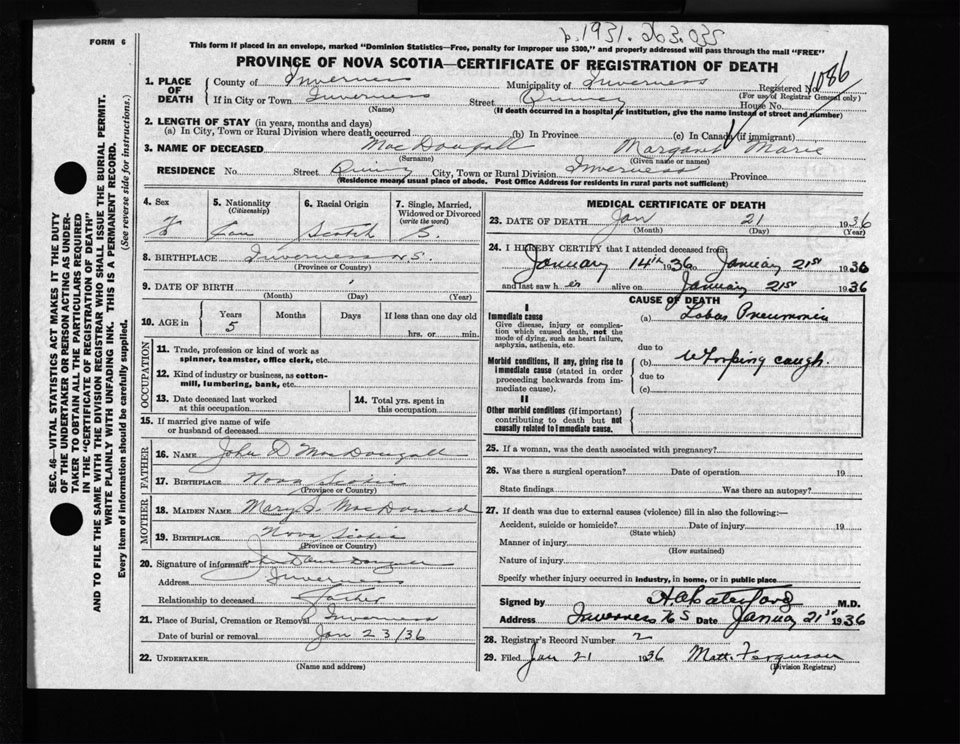 b.1931.263.035
FORM 6
This form if placed in an envelope, marked "Dominion Statistics—Free, penalty for improper use $300," and properly addressed will pass through the mail "FREE"
PROVINCE OF NOVA SCOTIA—CERTIFICATE OF REGISTRATION OF DEATH
1086
1. PLACE OF DEATH County of Inverness Municipality of Inverness Registered No.
(For use of Registrar General only)
If in City or Town Inverness Street House No.
(Name) (If death occurred in a hospital or institution, give the name instead of street and number)
2. LENGTH OF STAY (in years, months and days)
(a) In City, Town or Rural Division where death occurred (b) In Province (c) In Canada (if immigrant)
3. NAME OF DECEASED MacDougall Margaret Marie
(Surname) (Given name or names)
RESIDENCE No. Street City, Town or Rural Division Inverness Province
(Residence means usual place of abode. Post Office Address for residents in rural parts not sufficient)
SEC. 46—VITAL STATISTICS ACT MAKES IT THE DUTY
OF THE UNDERTAKER OR PERSON ACTING AS UNDER-
TAKER TO OBTAIN ALL THE PARTICULARS REQUIRED
IN THE "CERTIFICATE OF REGISTRATION OF DEATH"
AND TO FILE THE SAME WITH THE DIVISION REGISTRAR WHO SHALL ISSUE THE BURIAL PERMIT.
WRITE PLAINLY WITH UNFADING INK. THIS IS A PERMANENT RECORD.
Every item of information should be carefully supplied. (See reverse side for instructions.)
4. Sex 5. Nationality 6. Racial Origin 7. Single, Married,
(Citizenship) Widowed or Divorced
(write the word)
F Can Scotch S.
8. BIRTHPLACE Inverness N.S.
(Province or Country)
9. DATE OF BIRTH
(Month) (Day) (Year)
10. AGE in Years Months Days If less than one day old
5 hrs. or min.
OCCUPATION
11. Trade, profession or kind of work as
spinner, teamster, office clerk, etc.
12. Kind of industry or business, as cotton-
mill, lumbering, bank, etc.
13. Date deceased last worked at this occupation 14. Total yrs. spent in this occupation
15. If married give name of wife
or husband of deceased
FATHER
16. NAME John D MacDougall
17. BIRTHPLACE Nova Scotia
(Province or Country)
MOTHER
18. MAIDEN NAME Mary J. MacDonald
19. BIRTHPLACE Nova Scotia
(Province or Country)
20. Signature of informant
Address Inverness
Relationship to deceased Father
21. Place of Burial, Cremation or Removal Inverness
Date of burial or removal Jan 23/36
22. UNDERTAKER
(Name and address)
MEDICAL CERTIFICATE OF DEATH
23. DATE OF DEATH Jan 21 1936
(Month) (Day) (Year)
24. I HEREBY CERTIFY that I attended deceased from
January 14th 1936 to January 21st 1936
and last saw h er alive on January 21st 1936
CAUSE OF DEATH
I
Immediate cause
Give disease, injury or complica-
tion which caused death, not the
mode of dying, such as heart failure,
asphyxia, asthenia, etc.
(a) Lobar Pneumonia
due to
Morbid conditions, if any, giving rise to
immediate cause (stated in order
proceeding backwards from im-
mediate cause).
(b) Whooping cough.
due to
(c)
II
Other morbid conditions (if important)
contributing to death but not
causally related to immediate cause.
25. If a woman, was the death associated with pregnancy?
26. Was there a surgical operation? Date of operation 19
State findings Was there an autopsy?
27. If death was due to external causes (violence) fill in also the following:—
Accident, suicide or homicide? Date of injury 19
(State which)
Manner of injury
(How sustained)
Nature of injury
Specify whether injury occurred in industry, in home, or in public place
Signed by M.D.
Address Inverness N S Date January 21st 1936
28. Registrar's Record Number 2
29. Filed Jan 21 1936 Matt. Ferguson
(Division Registrar)